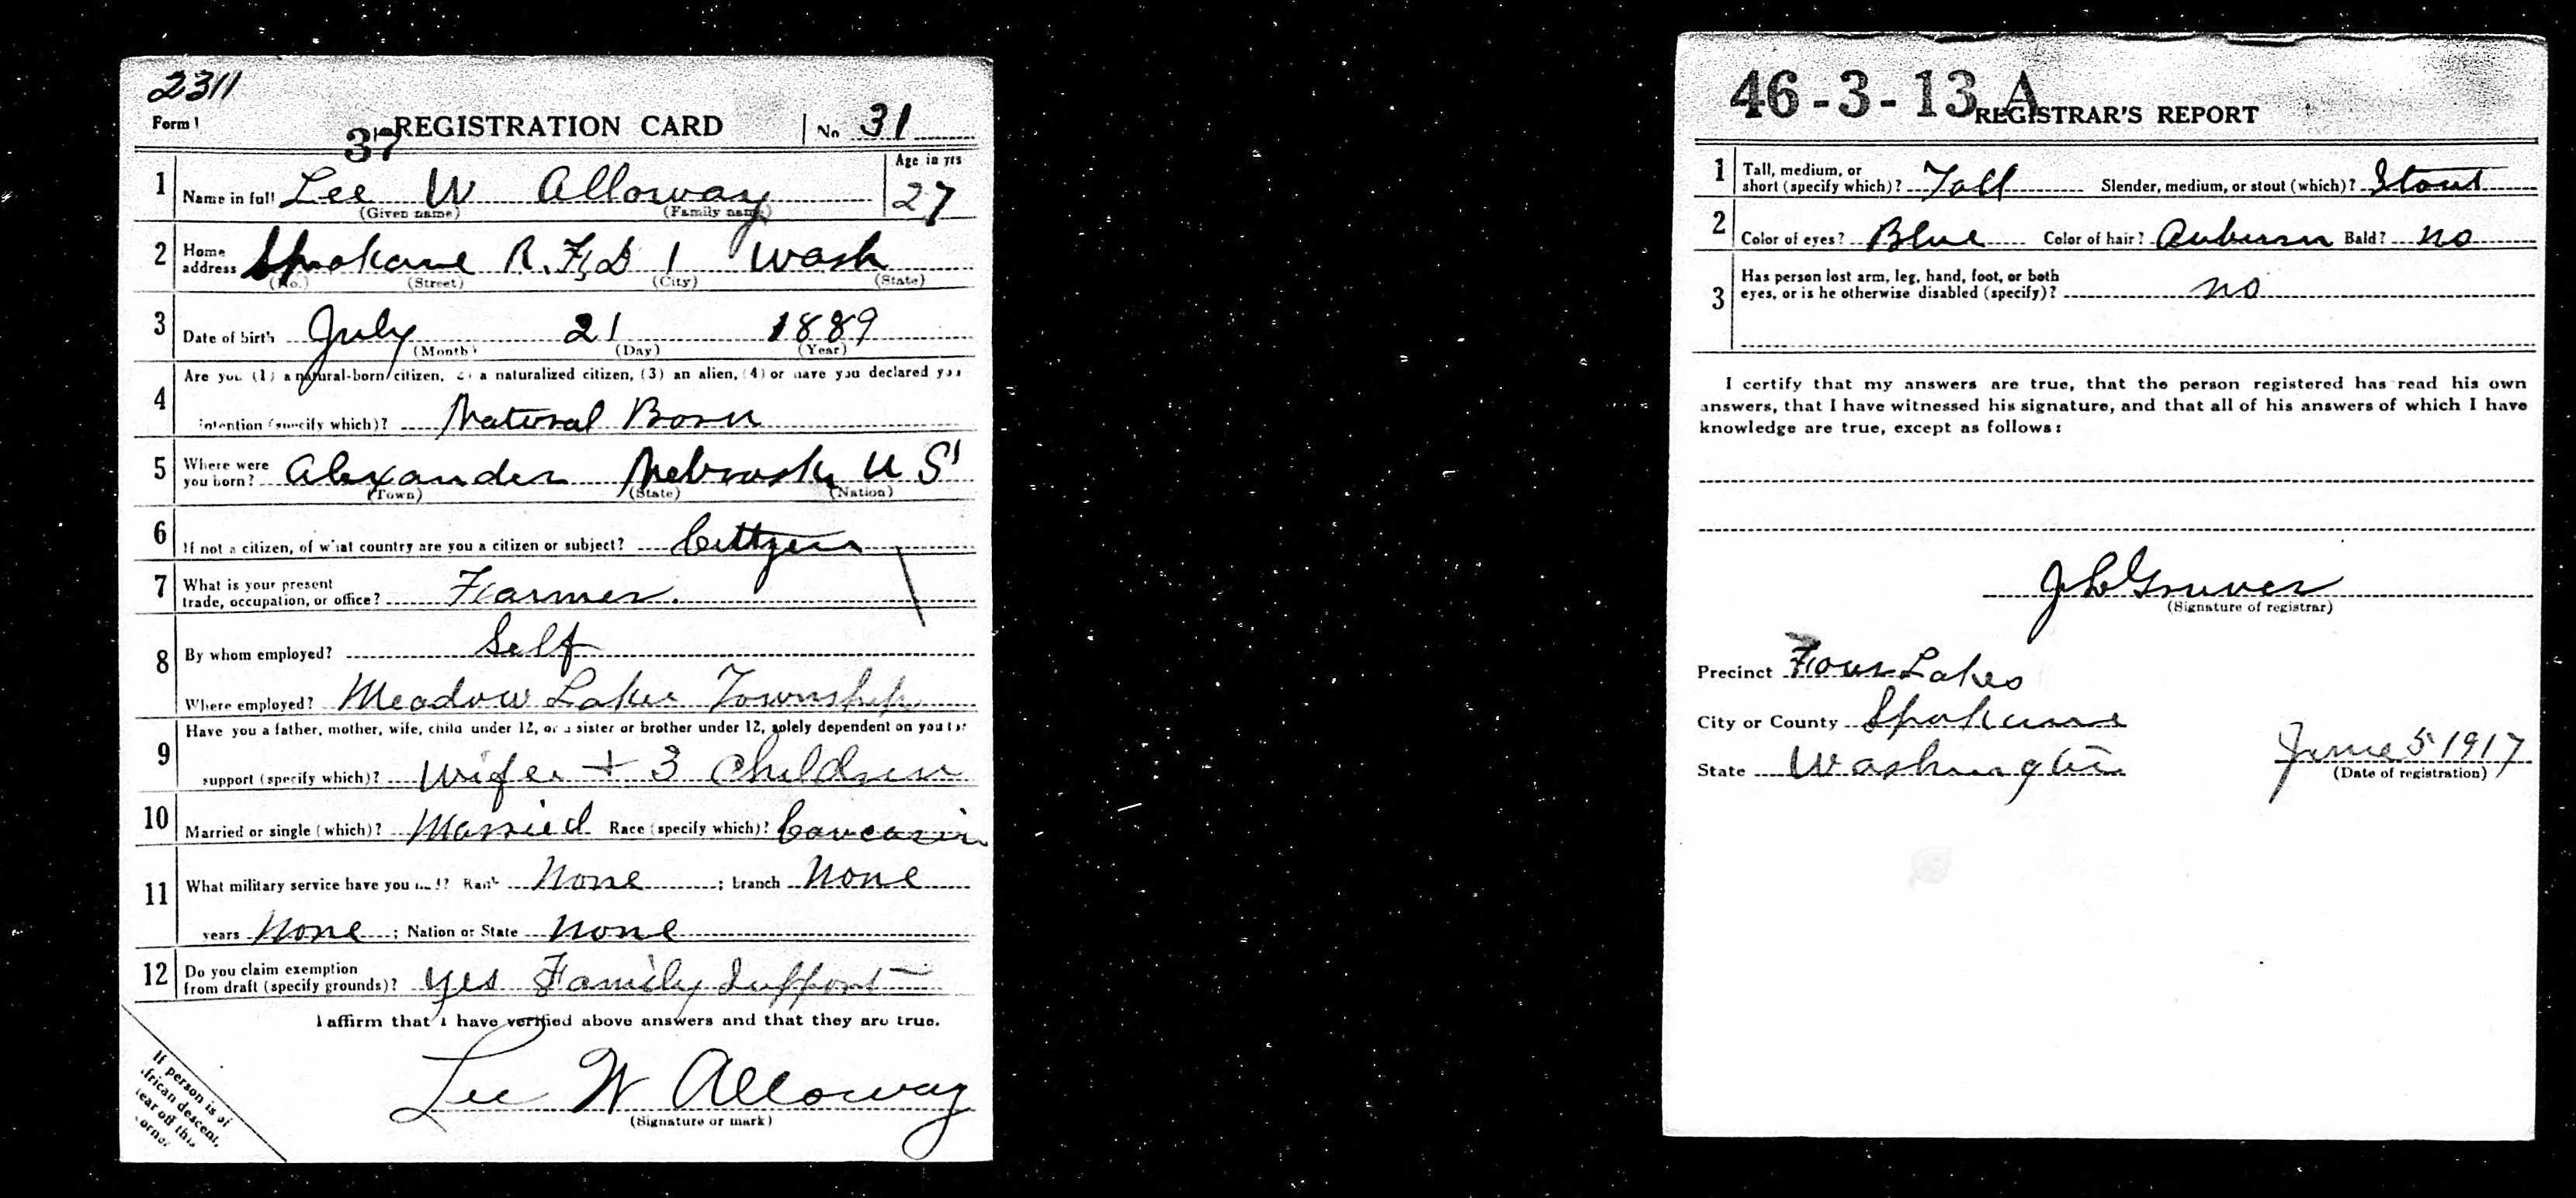 2311
Form 1 37 REGISTRATION CARD No 31
1 Name in full Lee W Alloway Age in yrs 27
(Given name) (Family name)
2 Home address Spokane R.F.D 1 Wash
(No.) (Street) (City) (State)
3 Date of birth July 21 1889
(Month) (Day) (Year)
4 Are you (1) a natural-born citizen, (2) a naturalized citizen, (3) an alien, (4) or have you declared your
intention (specify which)? Natural Born
5 Where were you born? Alexander Nebraska U S
(Town) (State) (Nation)
6 If not a citizen, of what country are you a citizen or subject? Cittzen
7 What is your present trade, occupation, or office? Farmer.
8 By whom employed? Self
Where employed? Meadow Lake Township
9 Have you a father, mother, wife, child under 12, or a sister or brother under 12, solely dependent on you for
support (specify which)? Wife + 3 Children
10 Married or single (which)? Married Race (specify which)? Caucasin
11 What military service have you had? Rank None ; branch None
years None ; Nation or State None
12 Do you claim exemption from draft (specify grounds)? Yes Family Support
I affirm that I have verified above answers and that they are true.
Lee W Alloway
(Signature or mark)
If person is of
African descent,
tear off this
corner
46-3-13 A REGISTRAR'S REPORT
1 Tall, medium, or short (specify which)? Tall Slender, medium, or stout (which)? Stout
2 Color of eyes? Blue Color of hair? Auburn Bald? no
3 Has person lost arm, leg, hand, foot, or both
eyes, or is he otherwise disabled (specify)? no
I certify that my answers are true, that the person registered has read his own
answers, that I have witnessed his signature, and that all of his answers of which I have
knowledge are true, except as follows:
J L Gruver
(Signature of registrar)
Precinct Four Lakes
City or County Spokane
State Washington June 5 1917
(Date of registration)